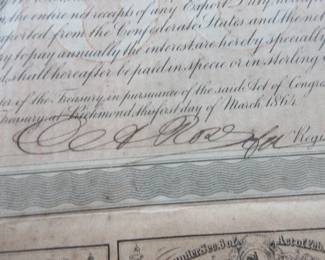 the entire net receipts of any Export Duty
exported from the Confederate States and the net
to pay annually the interest are hereby specially
shall hereafter be paid in specie or in sterling
of the Treasury, in pursuance of the said Act of Congress
Treasury, at Richmond, the first day of March 1864
Regis
under Sec. 6 of
Act of Feb